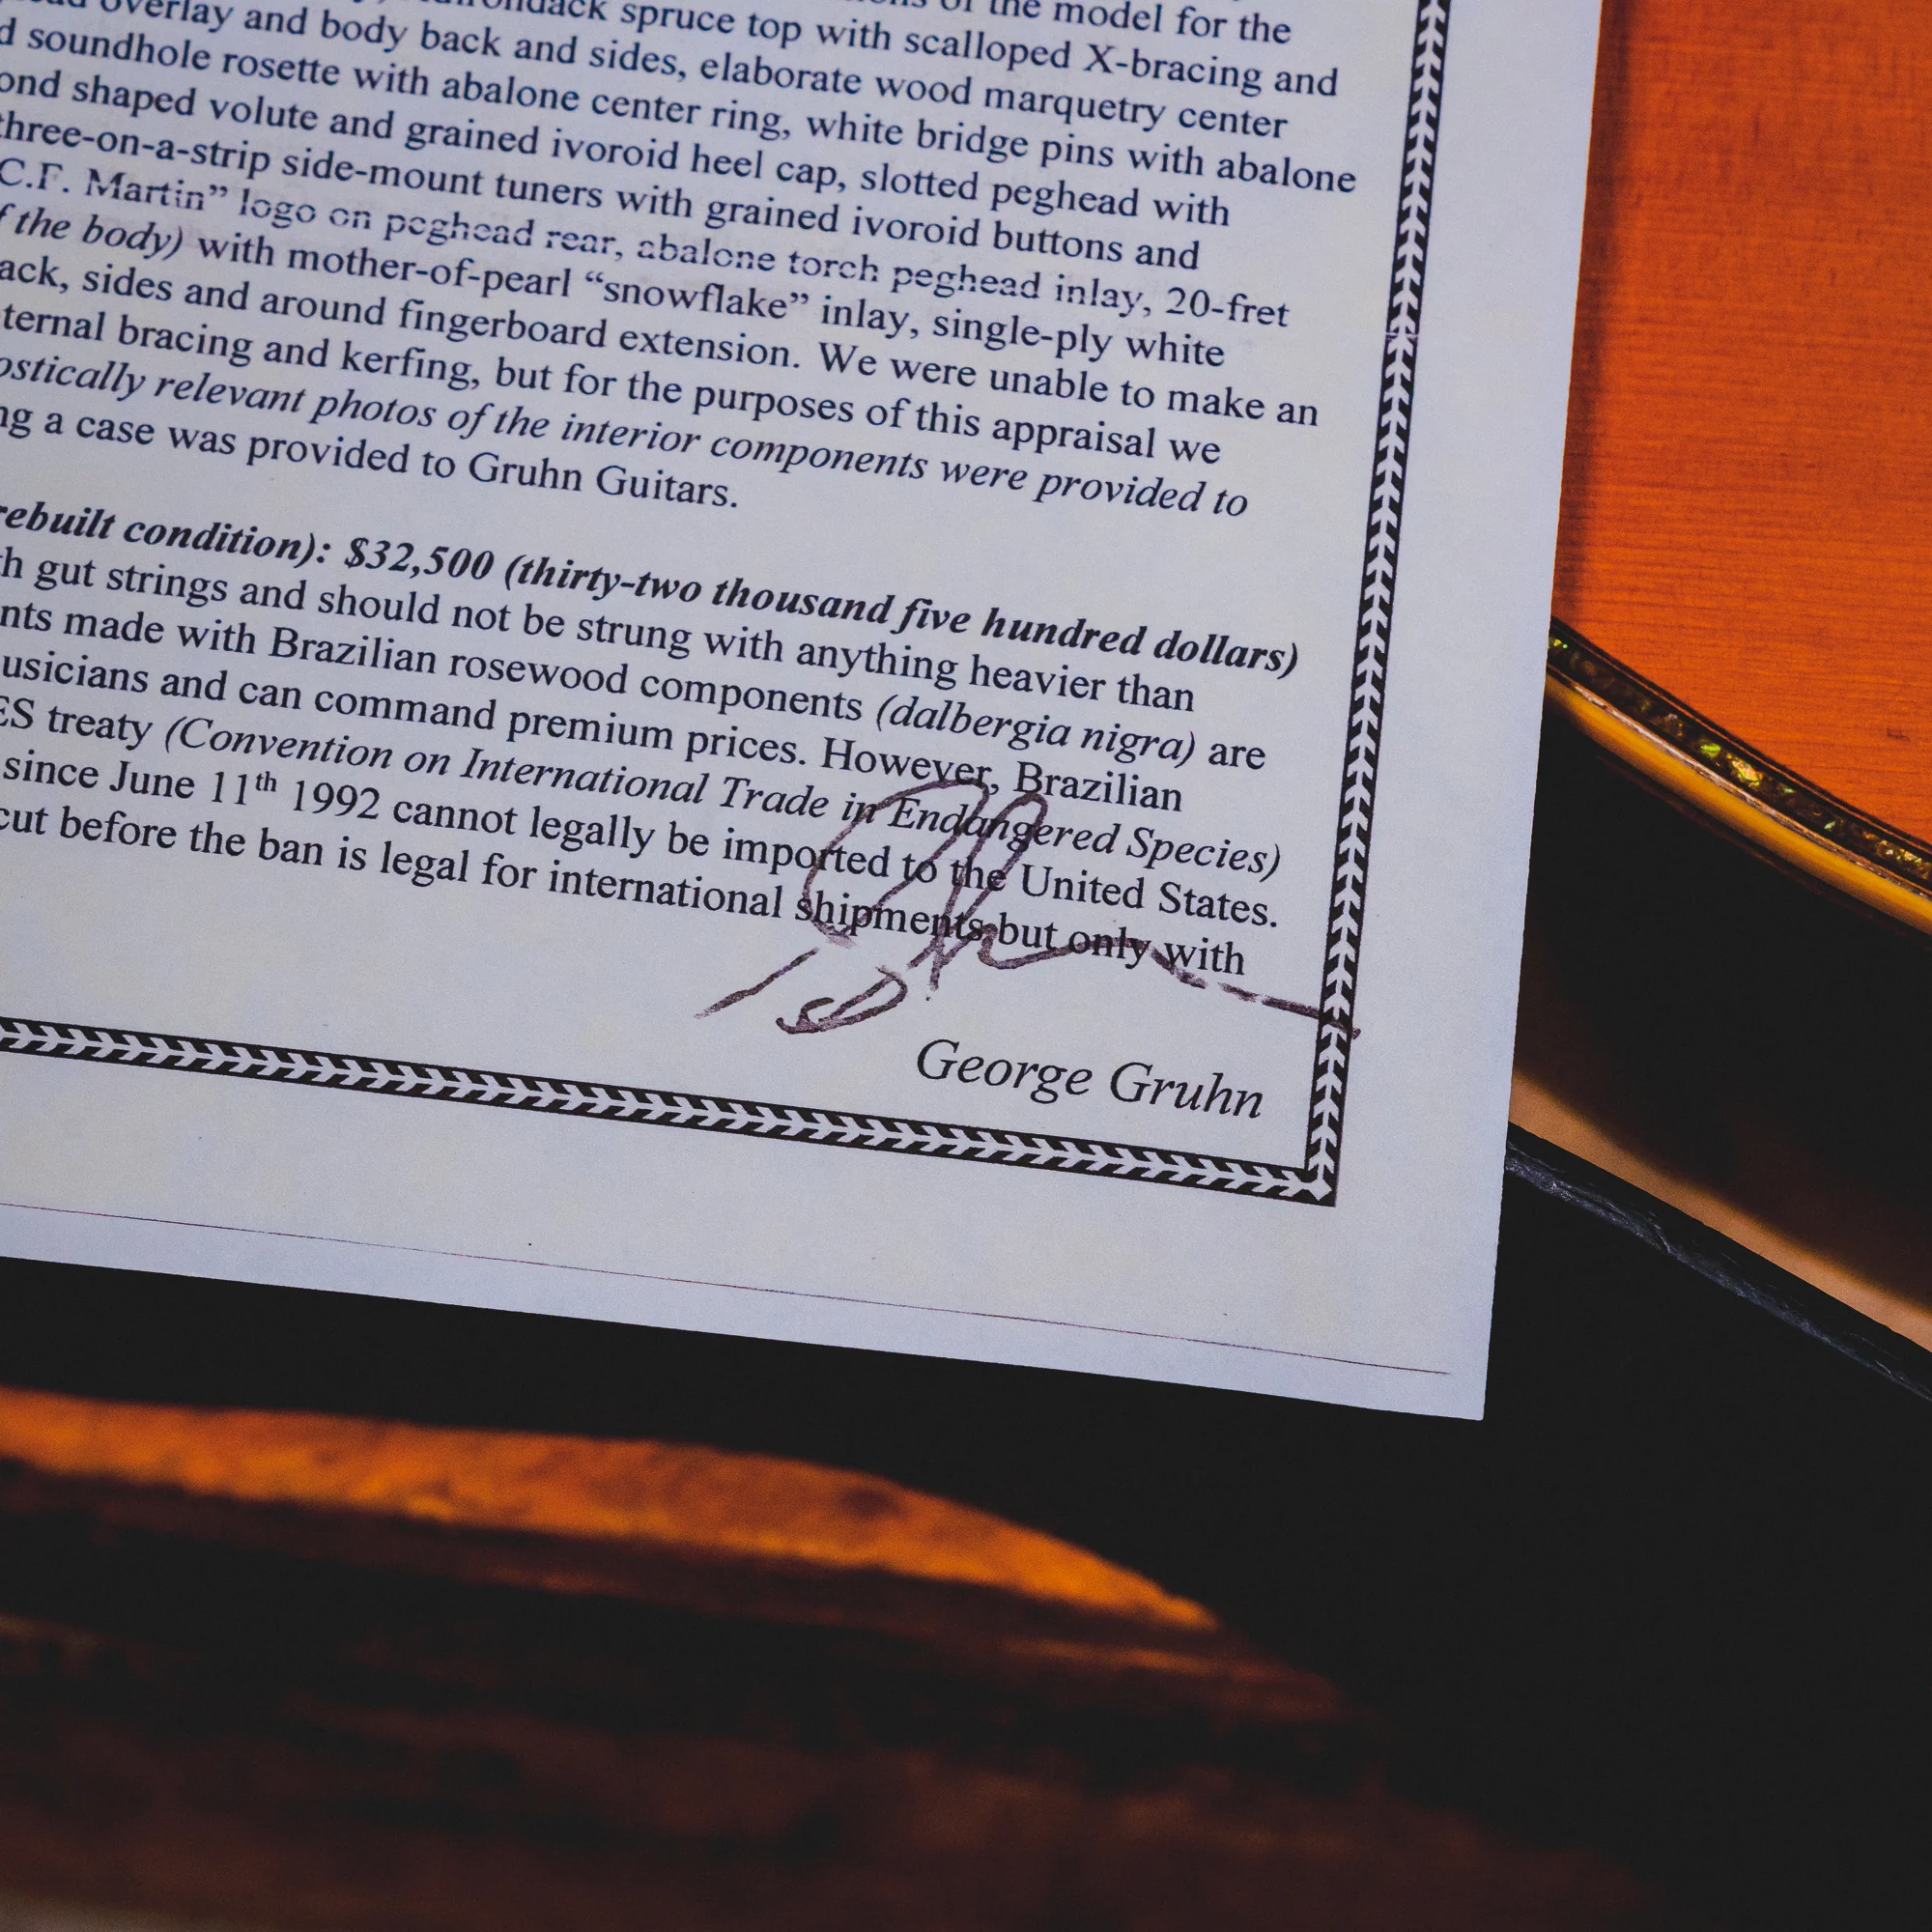 overlay and body back and sides, elaborate wood marquetry center
spruce top with scalloped X-bracing and
the model for the
soundhole rosette with abalone center ring, white bridge pins with abalone
shaped volute and grained ivoroid heel cap, slotted peghead with
three-on-a-strip side-mount tuners with grained ivoroid buttons and
C.F. Martin” logo on peghead rear, abalone torch peghead inlay, 20-fret
the body) with mother-of-pearl “snowflake” inlay, single-ply white
sides and around fingerboard extension. We were unable to make an
bracing and kerfing, but for the purposes of this appraisal we
relevant photos of the interior components were provided to
a case was provided to Gruhn Guitars.
rebuilt condition): $32,500 (thirty-two thousand five hundred dollars)
gut strings and should not be strung with anything heavier than
made with Brazilian rosewood components (dalbergia nigra) are
and can command premium prices. However, Brazilian
treaty (Convention on International Trade in Endangered Species)
since June 11th 1992 cannot legally be imported to the United States.
cut before the ban is legal for international shipments but only with
George Gruhn